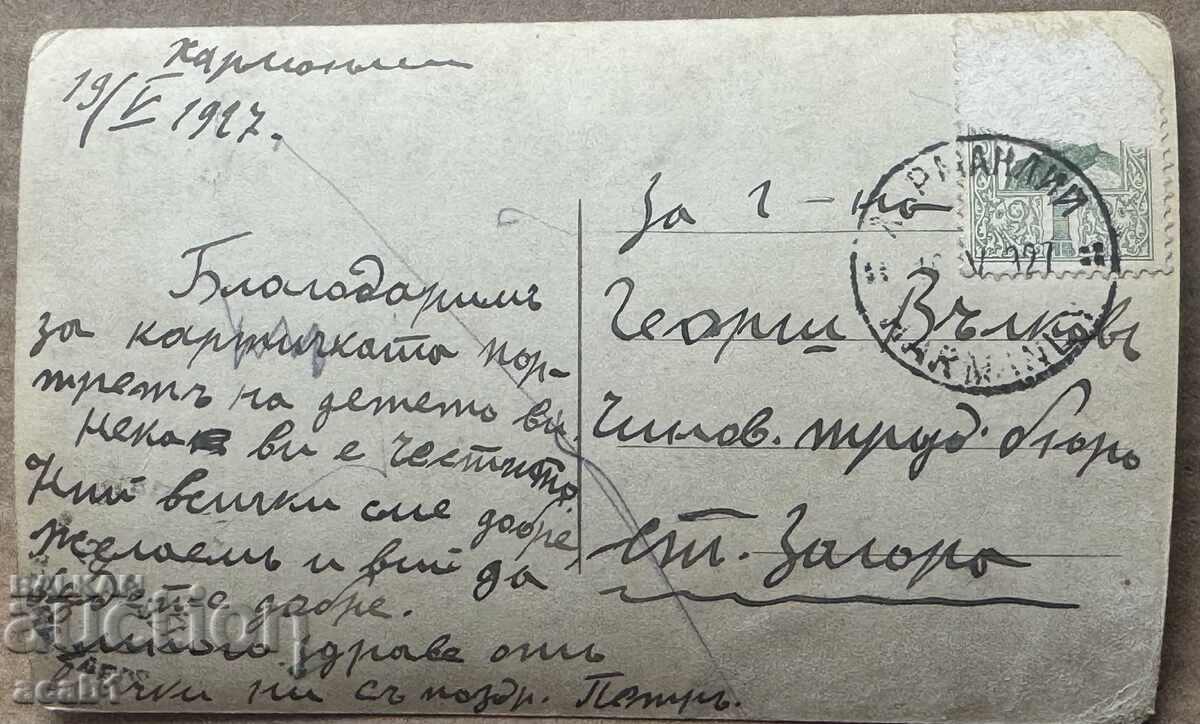 Хармонлии
19/V 1927.
Благодаримъ
за картичката пор-
третъ на детето ви.
Нека ви е честито
Ний всички сме добре
желаемъ и вий да
сте добре.
Много здраве отъ
всички ни съ поздр. Петъръ.
За г-на
Георги Вълковъ
Чинов. труд. бюро
Ст. Загора
ХАРМАНЛИЙ
V 927
HARMANLI
БАЛКАН
auction
acab1